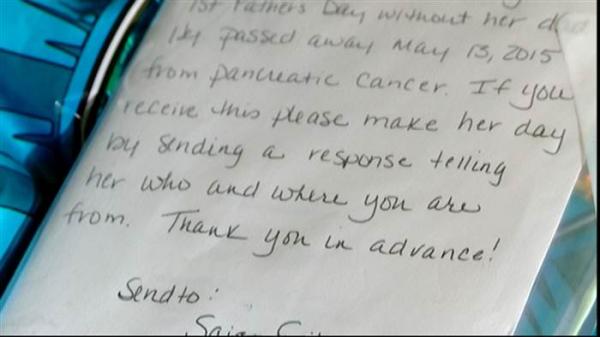 1st Fathers Day without her
passed away May 13, 2015
from pancreatic cancer. If you
receive this please make her day
by sending a response telling
her who and where you are
from. Thank you in advance!
Send to: